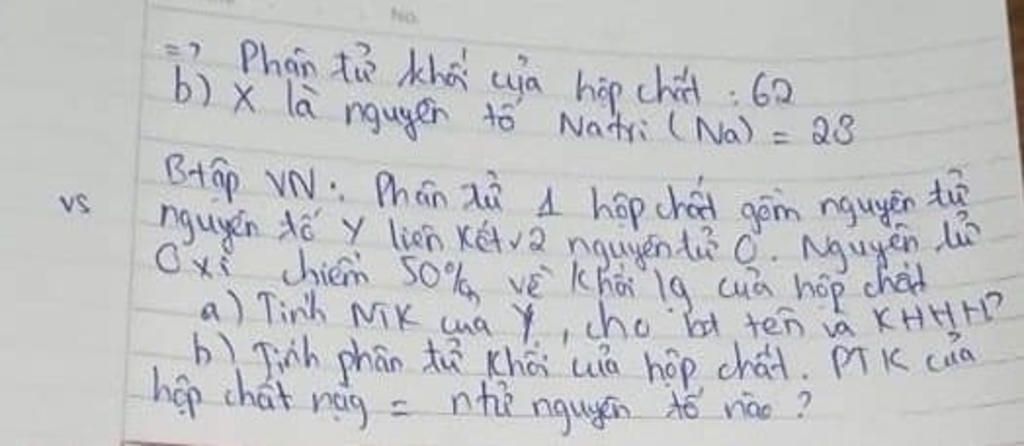 No.
=> Phân tử khối của hợp chất : 62
b) X là nguyên tố Natri (Na) = 23
B+ập VN: Phân tử 1 hợp chất gồm nguyên tử
vs
nguyên tố Y liên kết v2 nguyên tử O. Nguyên tử
Oxi chiếm 50% về khối lg của hợp chất
a) Tính NTK của Y, cho bt tên và KHHH?
b) Tính phân tử khối của hợp chất. PTK của
hợp chất này = ntử nguyên tố nào ?